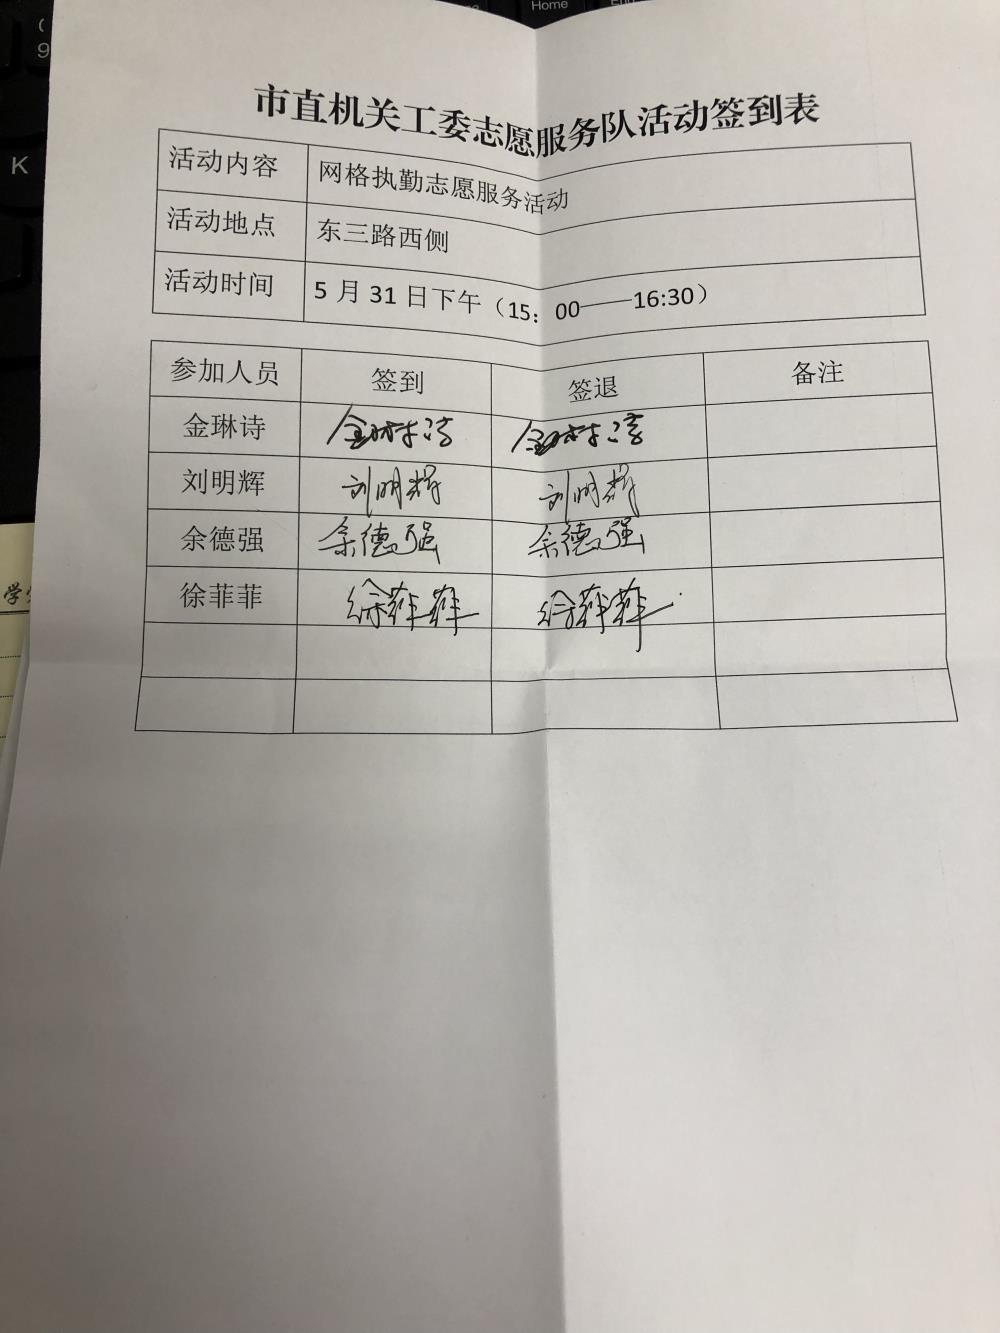 Home
End
9
K
学
市直机关工委志愿服务队活动签到表
活动内容 网格执勤志愿服务活动
活动地点 东三路西侧
活动时间 5月31日下午（15：00——16:30）
参加人员 签到 签退 备注
金琳诗 金琳诗 金琳诗
刘明辉 刘明辉 刘明辉
余德强 余德强 余德强
徐菲菲 徐菲菲 徐菲菲